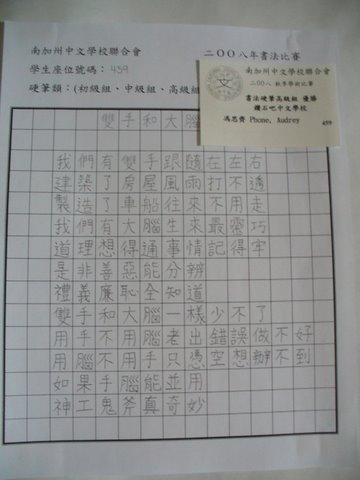 南加州中文學校聯合會
二○○八年書法比賽
學生座位號碼：459
硬筆類：(初級組、中級組、高級組
南加州中文學校聯合會
二○○八 秋季學術比賽
書法硬筆高級組 優勝
鑽石吧中文學校
馮思賚 Phone, Audrey
459
雙手和大腦
我們有雙手跟隨左左右
建築了房屋風雨打不透
製造了車船往來不用走
我們有大腦生來最靈巧
道理想得通事情記得牢
是非善惡能分辨
禮義廉恥全知道
雙手和大腦一樣少不了
用手不用腦老出錯誤做不好
用腦不用手只憑空想辦不到
如果手腦能並用
神工鬼斧真奇妙